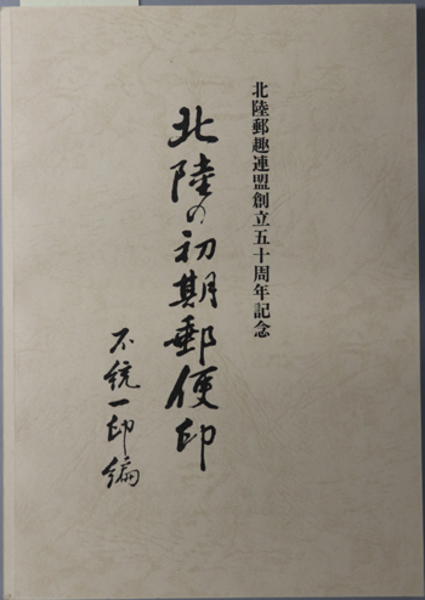 北陸郵趣連盟創立五十周年記念
北陸の初期郵便印
不統一印編